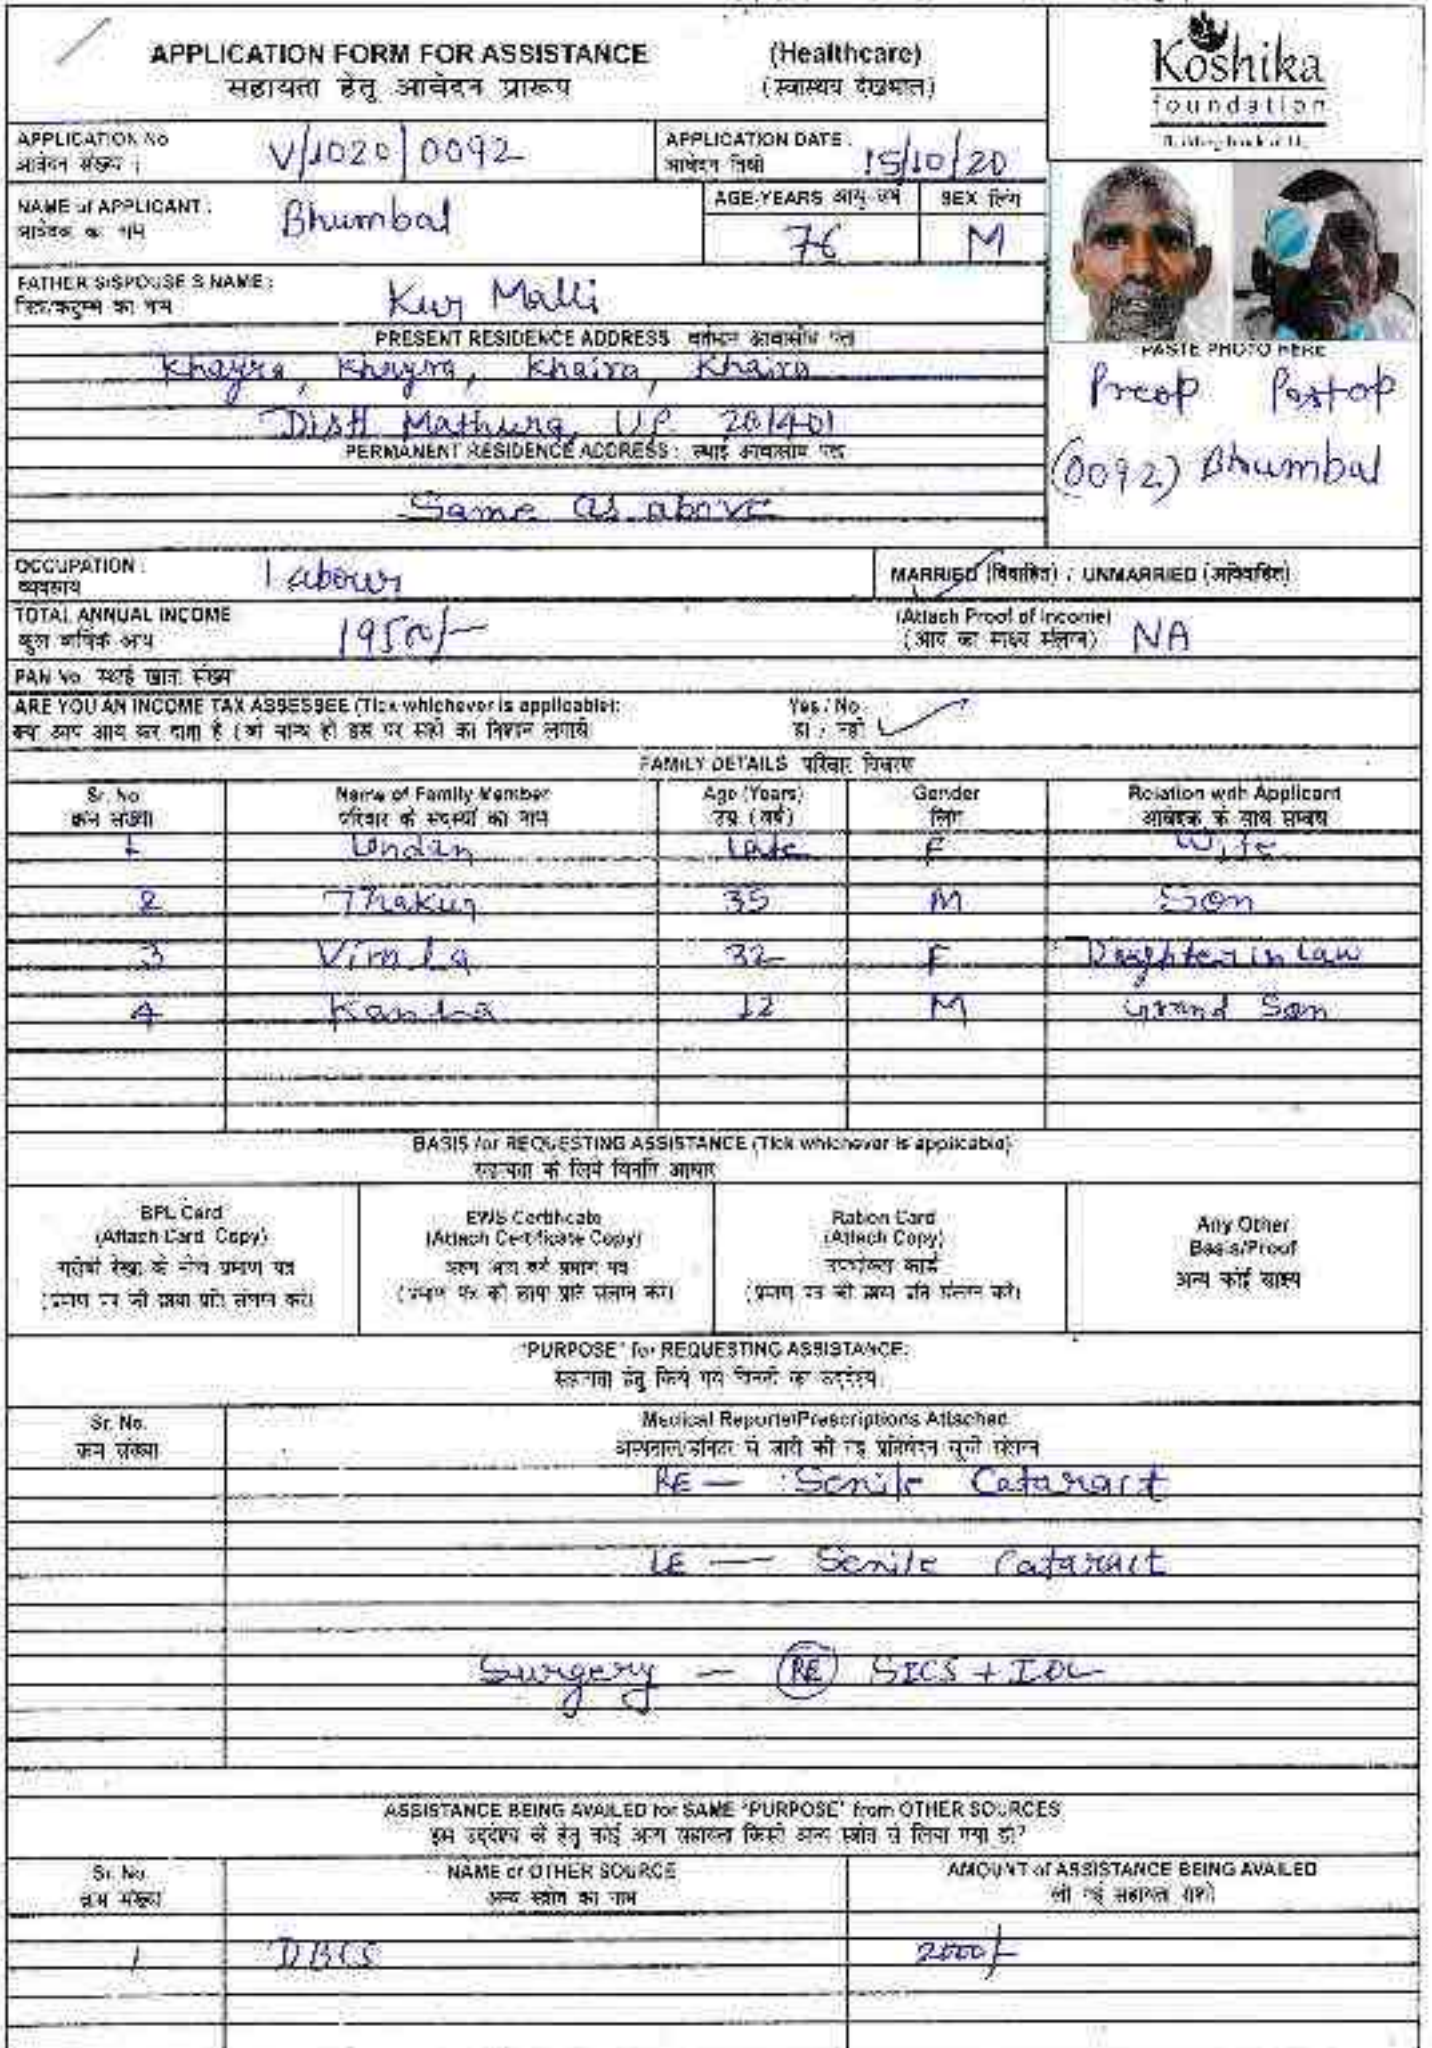 APPLICATION FORM FOR ASSISTANCE (Healthcare)
सहायता हेतु आवेदन प्रारूप (स्वास्थ्य देखभाल)
Koshika
foundation
APPLICATION No
आवेदन संख्या :
V/1020/0092
APPLICATION DATE :
आवेदन तिथी
15/10/20
NAME of APPLICANT :
आवेदक का नाम
Bhumbal
AGE-YEARS आयु-वर्ष
76
SEX लिंग
M
FATHER'S/SPOUSE'S NAME :
Kur Malli
PRESENT RESIDENCE ADDRESS वर्तमान आवासीय पता
Khayra, Khayra, Khaira, Khaira
Distt Mathura, U.P. 281401
PERMANENT RESIDENCE ADDRESS : स्थाई आवासीय पता
Same as above
PASTE PHOTO HERE
Preop Postop
(0092) Bhumbal
OCCUPATION :
व्यवसाय
Labour
MARRIED (विवाहित) / UNMARRIED (अविवाहित)
TOTAL ANNUAL INCOME
कुल वार्षिक आय
(Attach Proof of Income)
NA
PAN No. स्थाई खाता संख्या
ARE YOU AN INCOME TAX ASSESSEE (Tick whichever is applicable): Yes / No
हां / नहीं
FAMILY DETAILS परिवार विवरण
Sr. No. Name of Family Member Age (Years) Gender Relation with Applicant
क्रम संख्या परिवार के सदस्यों का नाम उम्र (वर्ष) लिंग आवेदक के साथ सम्बंध
1 Londan Late F Wife
2 Thakur 35 M Son
3 Vimla 32 F Daughter in Law
4 Kanha 12 M Grand Son
BASIS for REQUESTING ASSISTANCE (Tick whichever is applicable)
सहायता के लिये विनति आधार
BPL Card
(Attach Card Copy)
गरीबी रेखा के नीचे प्रमाण पत्र
(प्रमाण पत्र की छाया प्रति संलग्न करें)
EWS Certificate
(Attach Certificate Copy)
(प्रमाण पत्र की छाया प्रति संलग्न करें)
Ration Card
(Attach Copy)
उपभोक्ता कार्ड
(प्रमाण पत्र की छाया प्रति संलग्न करें)
Any Other
Basis/Proof
अन्य कोई साक्ष्य
"PURPOSE" for REQUESTING ASSISTANCE:
Sr. No.
क्रम संख्या
Medical Reports/Prescriptions Attached
RE — Senile Cataract
LE — Senile Cataract
Surgery — RE SICS + IOL
ASSISTANCE BEING AVAILED for SAME "PURPOSE" from OTHER SOURCES
Sr. No. NAME of OTHER SOURCE AMOUNT of ASSISTANCE BEING AVAILED
क्रम संख्या अन्य स्त्रोत का नाम ली गई सहायता राशी
1 DBCS 2000/-